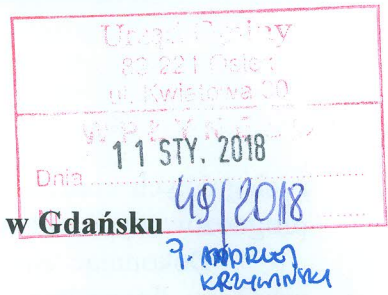 Urząd Gminy
83-221 Osiek
ul. Kwiatowa 30
WPŁYNĘŁO
11 STY. 2018
Dnia
Nr 49/2018
w Gdańsku
P. ANDRZEJ
KRZYWIŃSKI